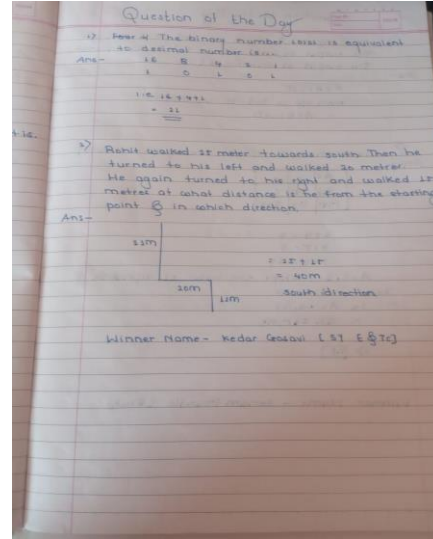 Question of the Day
1) The binary number 10101 is equivalent
to decimal number is:-
Ans- 16 8 4 2 1
1 0 1 0 1
i.e. 16+4+1
= 21
2) Rohit walked 25 meter towards south Then he
turned to his left and walked 20 metres.
He again turned to his right and walked 15
metres at what distance is he from the starting
point & in which direction
Ans-
20m
= 25+15
= 40m
South direction
Winner Name- Kedar